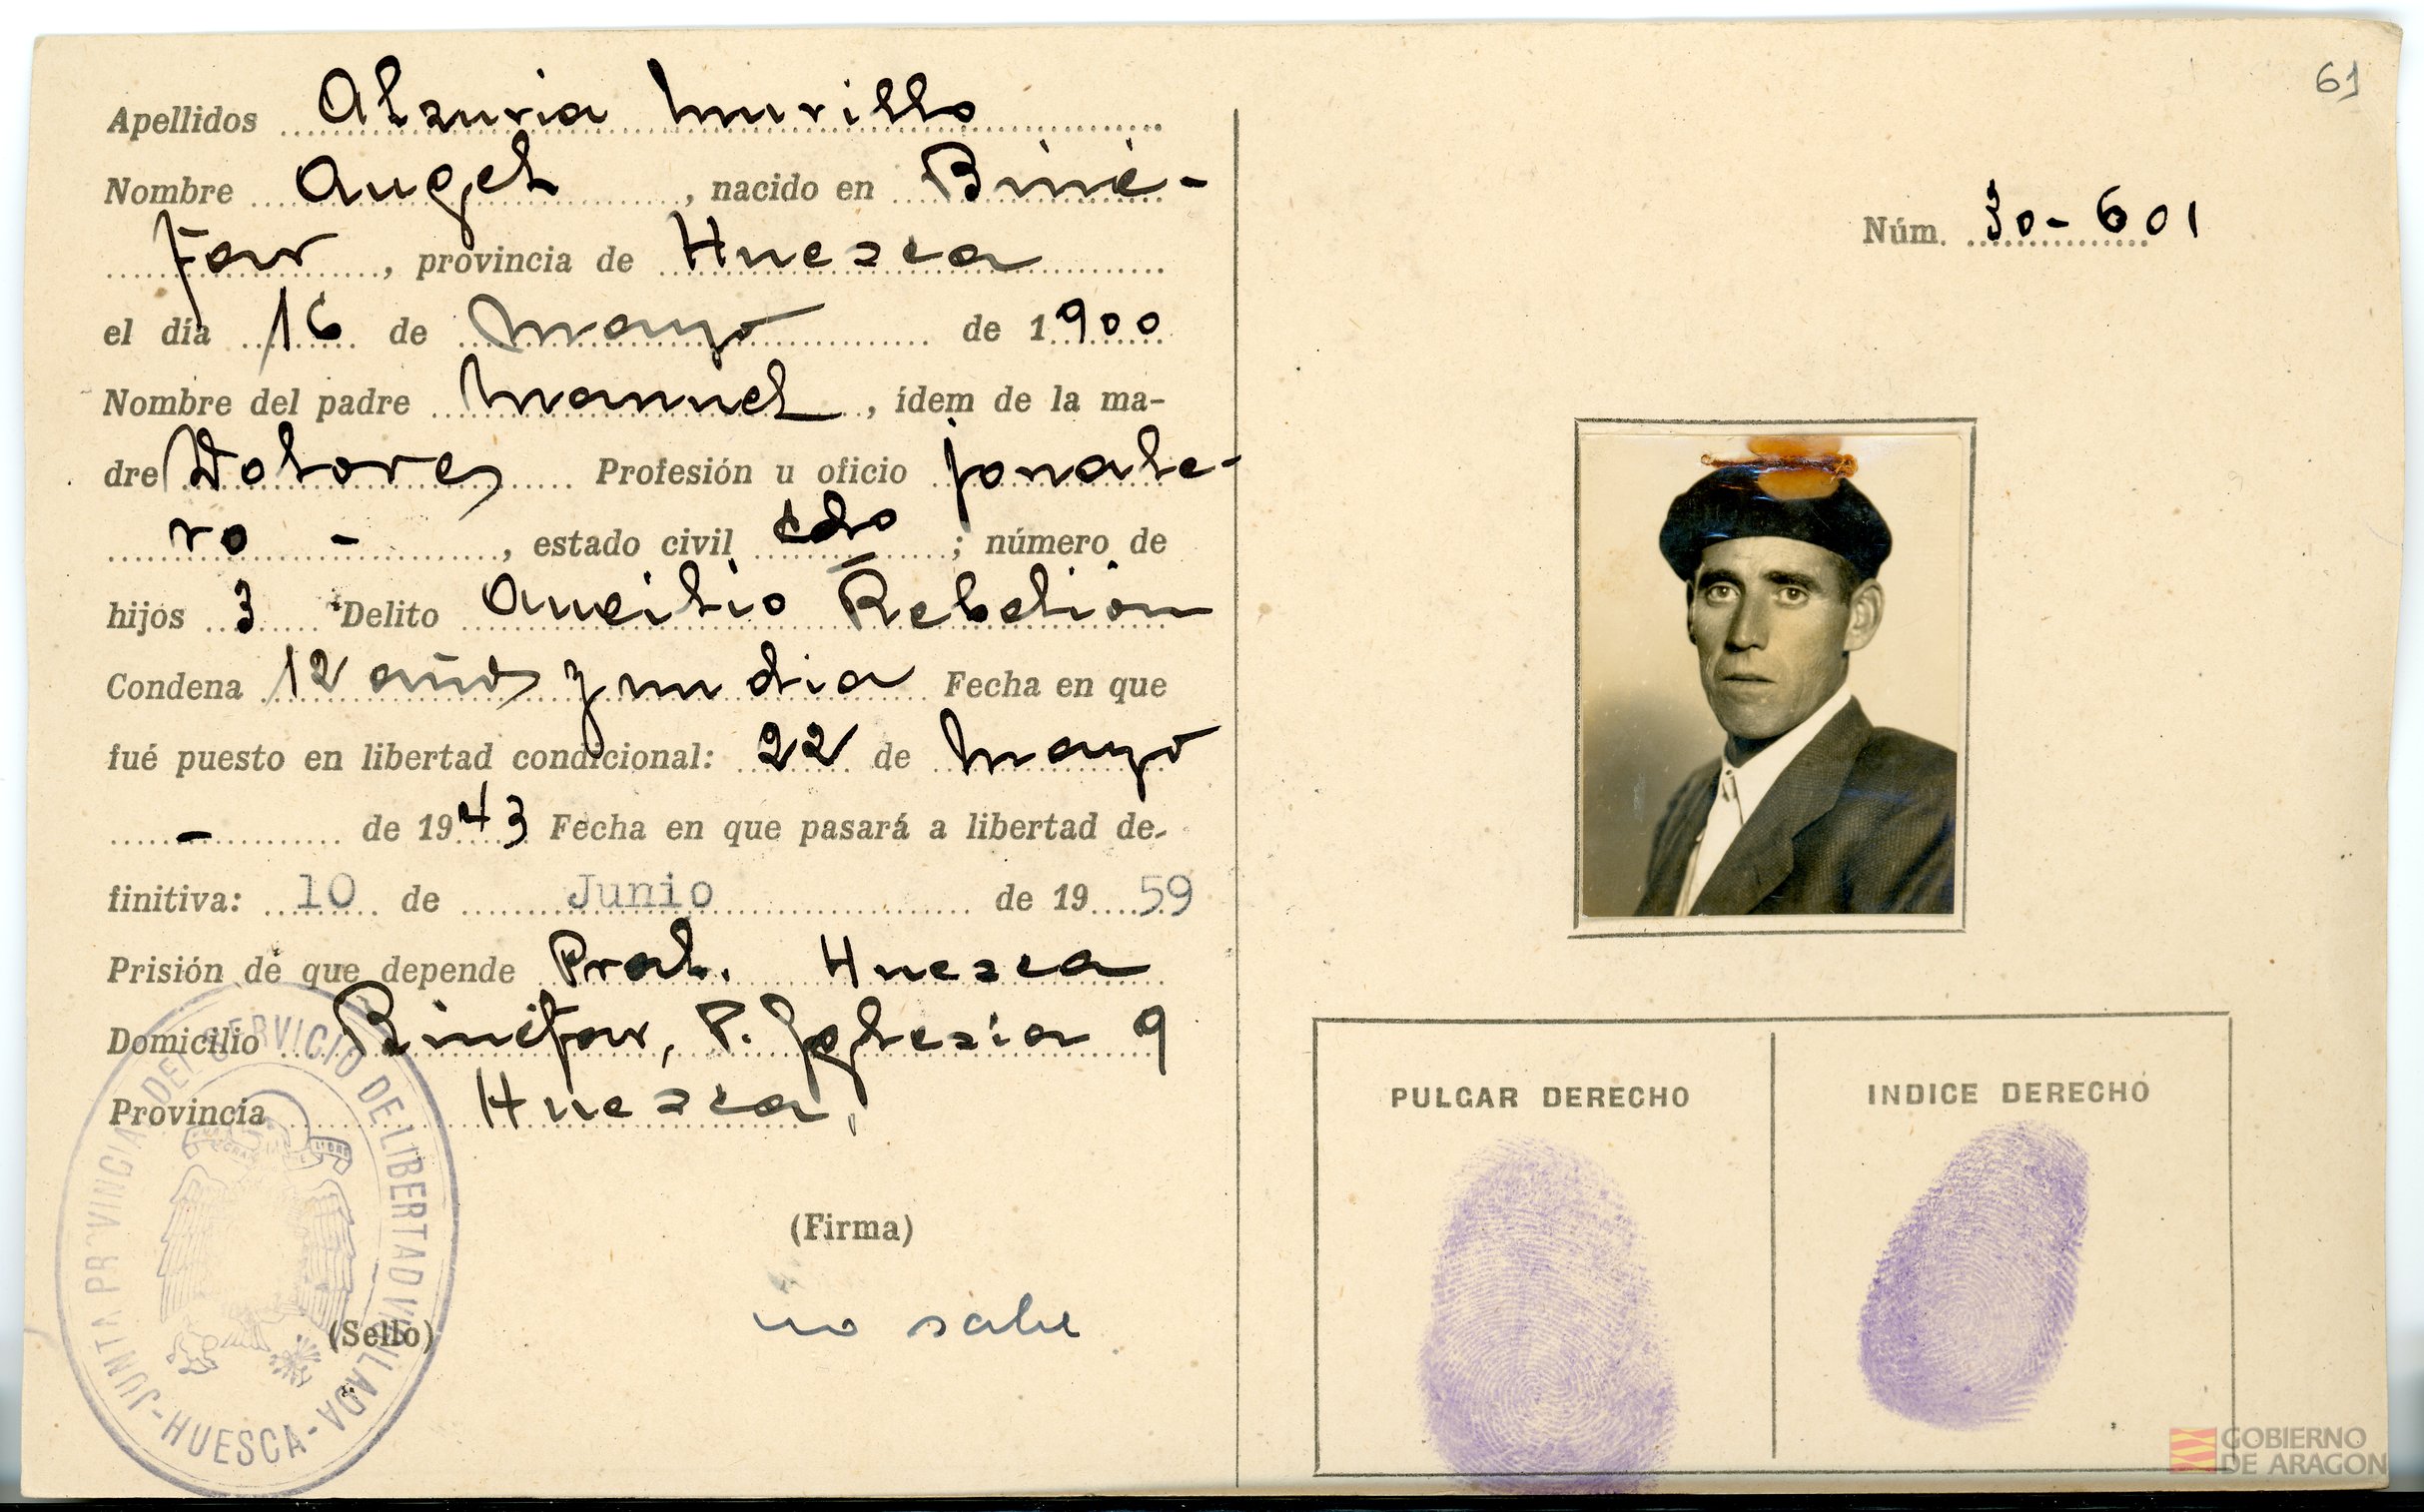 61
Apellidos Alzuria Murillo
Nombre Angel, nacido en Biné-
far, provincia de Huesca
el día 16 de Mayo de 1900
Nombre del padre Manuel, ídem de la ma-
dre Dolores Profesión u oficio jornale-
ro -, estado civil cdo; número de
hijos 3 Delito Auxilio Rebelión
Condena 12 años y un dia Fecha en que
fué puesto en libertad condicional: 22 de Mayo
- de 1943 Fecha en que pasará a libertad de-
finitiva: 10 de Junio de 1959
Prisión de que depende Pral. Huesca
Domicilio Binéfar, P. Iglesia 9
Provincia Huesca,
(Firma)
no sabe
(Sello)
JUNTA PROVINCIAL DEL SERVICIO DE LIBERTAD VIGILADA - HUESCA -
Núm. 30-601
PULGAR DERECHO
INDICE DERECHO
GOBIERNO
DE ARAGON